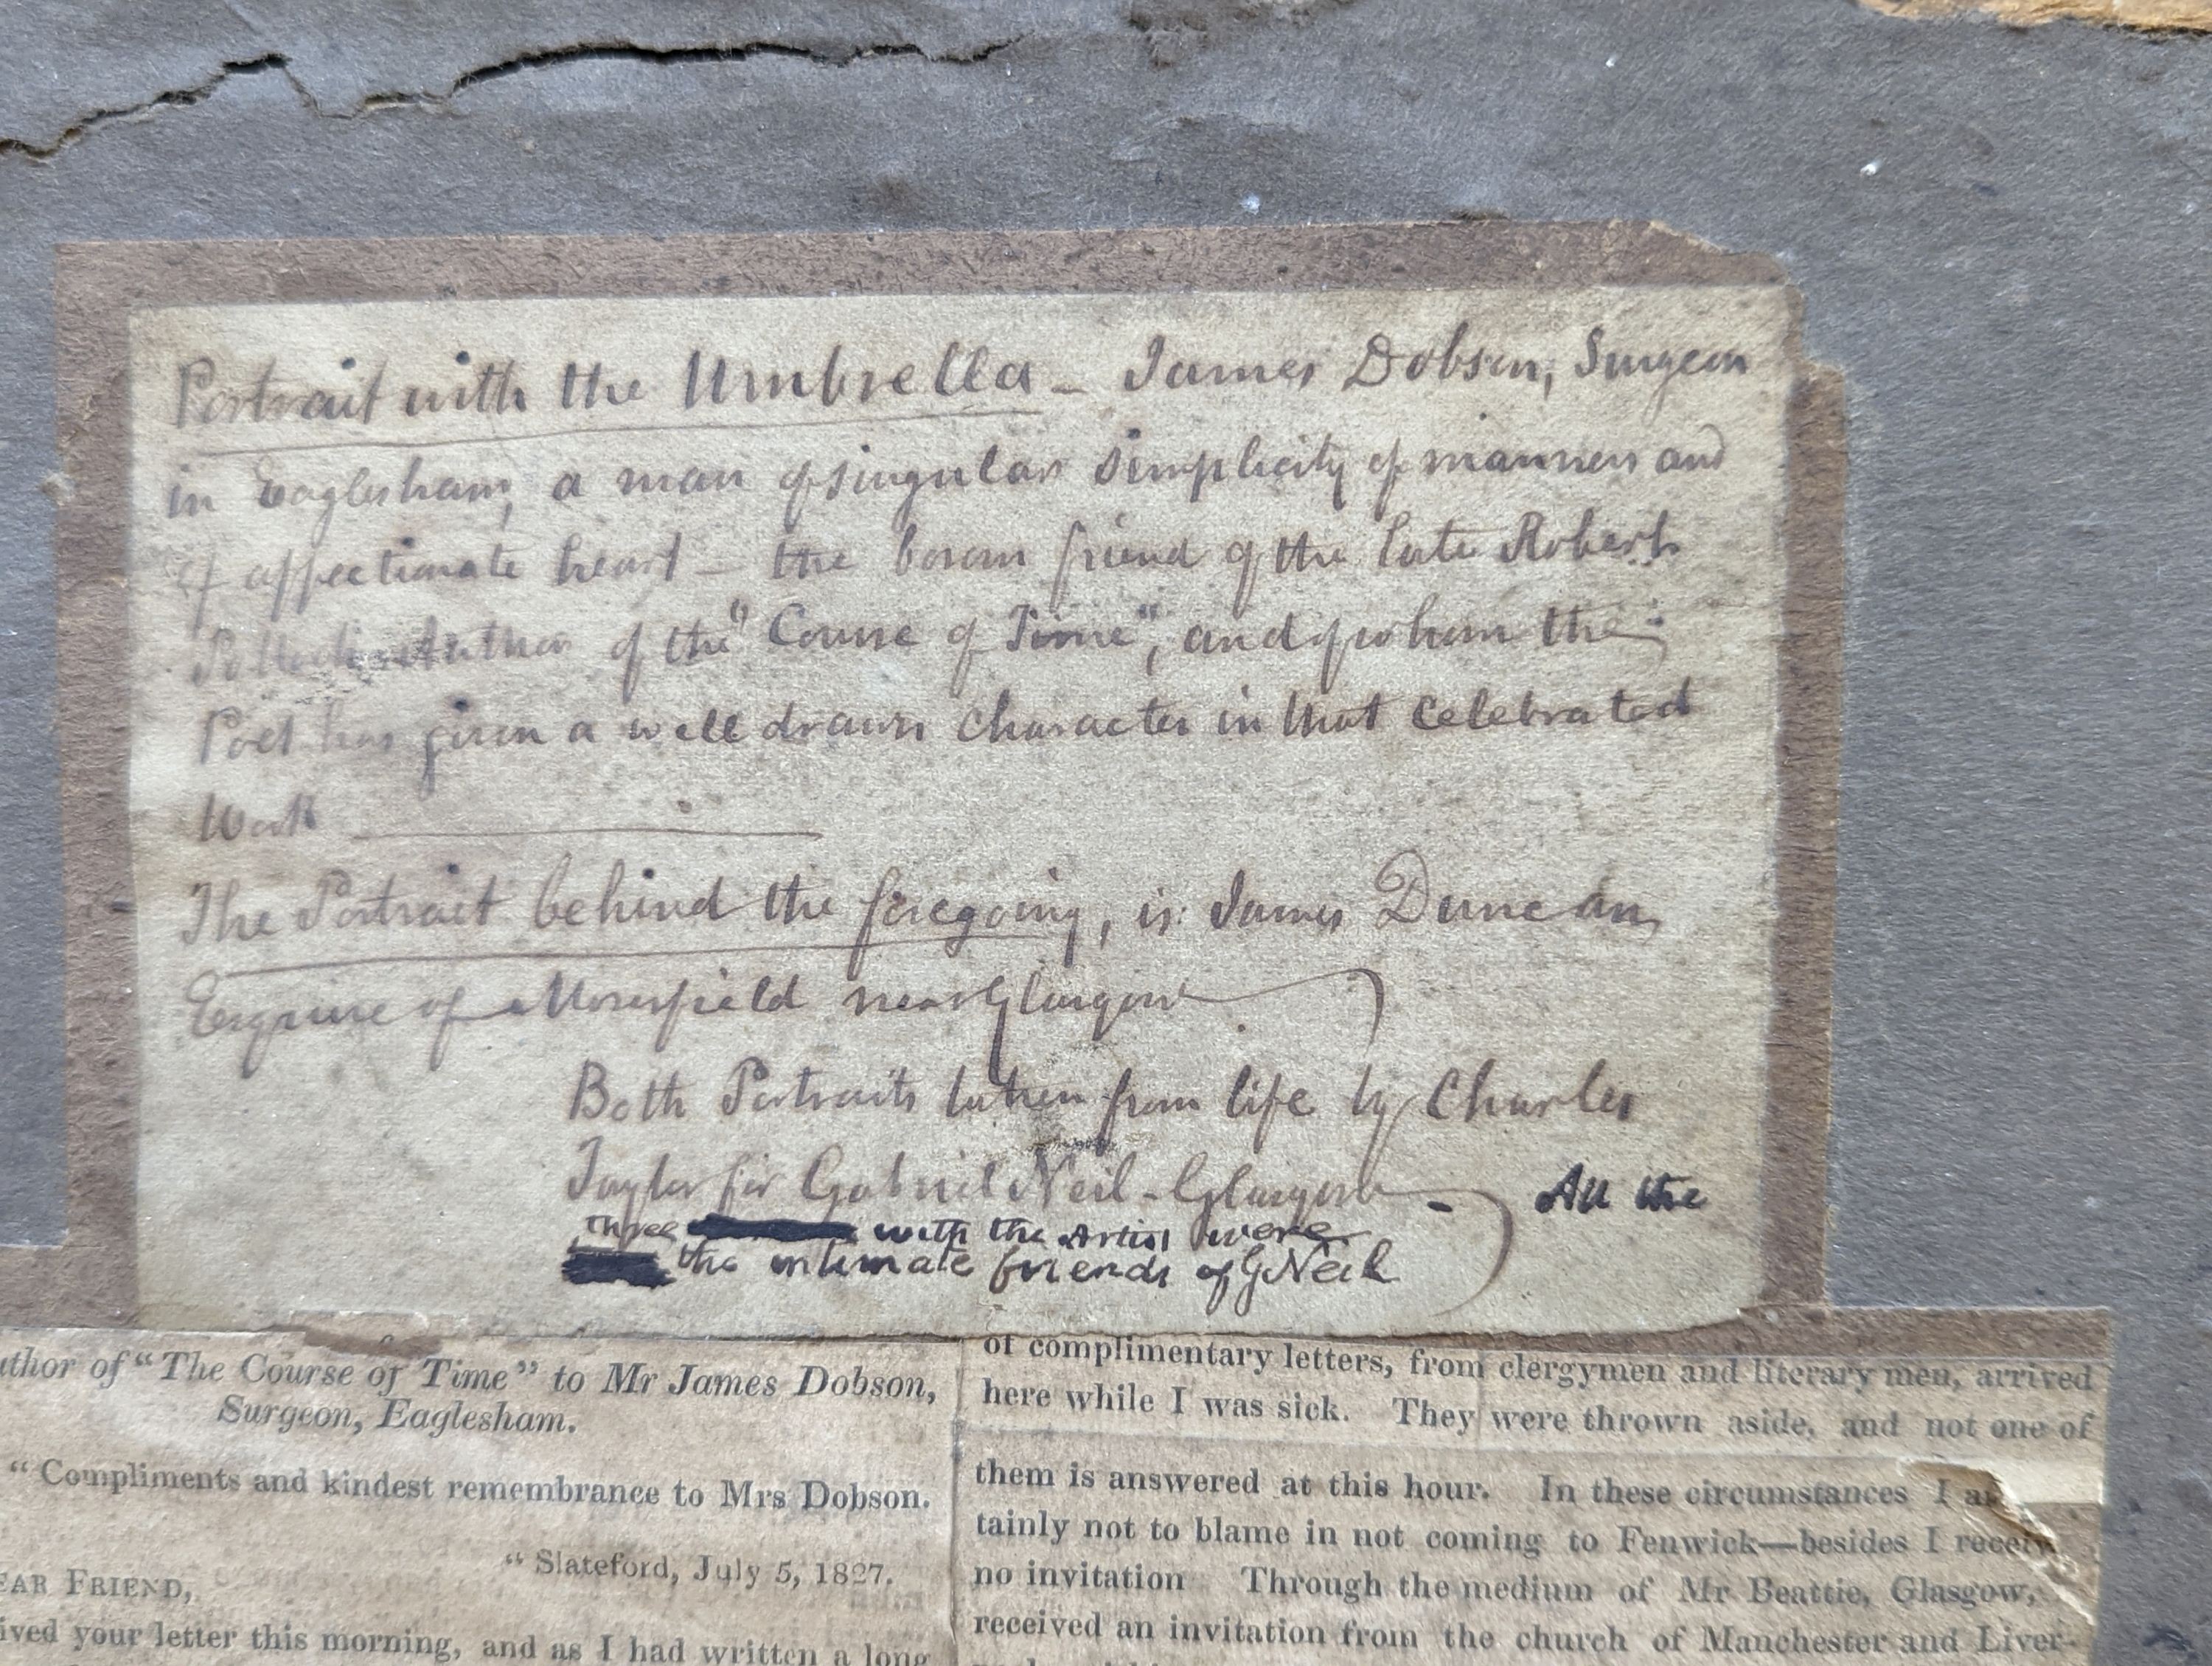 Portrait with the Umbrella - James Dobson, Surgeon
in Eaglesham, a man of singular simplicity of manners and
of affectionate heart - the bosom friend of the late Robert
Pollock Author of the "Course of Time", and of whom the
Poet has given a well drawn character in that celebrated
Work
The Portrait behind the foregoing, is James Duncan
Esquire of Mosesfield near Glasgow
Both Portraits taken from life by Charles
Taylor for Gabriel Neil - Glasgow - All the
three with the Artist were
the intimate friends of G Neil
uthor of "The Course of Time" to Mr James Dobson,
Surgeon, Eaglesham.
"Compliments and kindest remembrance to Mrs Dobson.
"Slateford, July 5, 1827.
EAR FRIEND,
ived your letter this morning, and as I had written a long
of complimentary letters, from clergymen and literary men, arrived
here while I was sick. They were thrown aside, and not one of
them is answered at this hour. In these circumstances I
tainly not to blame in not coming to Fenwick—besides I
no invitation Through the medium of Mr Beattie, Glasgow,
received an invitation from the church of Manchester and Liver-